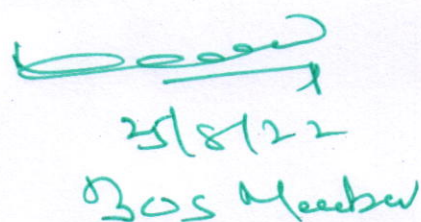 25/8/22
BOS Member